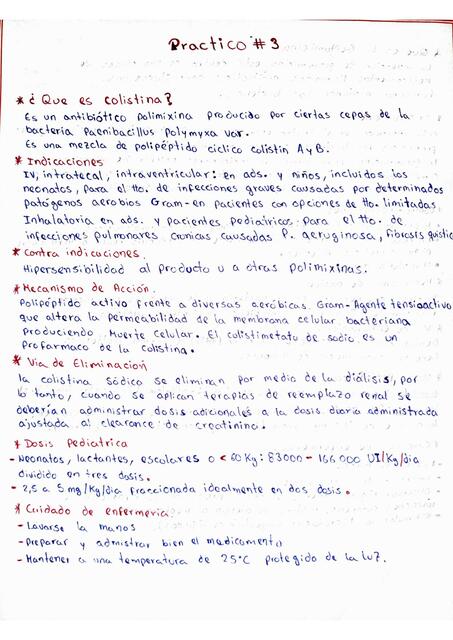 Practico # 3
* ¿Que es colistina?
Es un antibiótico polimixina producido por ciertas cepas de la
bacteria Paenibacillus Polymyxa var.
Es una mezcla de polipéptido ciclico colistin A y B.
* Indicaciones
IV, intratecal, intraventricular: en ads. y niños, incluidos los
neonatos, para el tto. de infecciones graves causadas por determinados
patógenos aerobios Gram- en pacientes con opciones de tto. limitadas.
Inhalatoria en ads. y pacientes pediatricos para el tto. de
infecciones pulmonares cronicas causadas P. aeruginosa, fibrosis quistic
* Contra indicaciones.
Hipersensibilidad al producto u a otras polimixinas.
* Mecanismo de Acción.
Polipéptido activo frente a diversas aeróbicas Gram- Agente tensioactivo
que altera la permeabilidad de la membrana celular bacteriana
produciendo Muerte celular. El colistimetato de sodio es un
profarmaco de la colistina.
* Via de Eliminacion
la colistina Sódica se eliminan por medio de la diálisis, por
lo tanto, cuando se aplican terapias de reemplazo renal se
deberían administrar dosis adicionales a la dosis diaria administrada
ajustada al clearance de creatinina.
* Dosis Pediatrica
- Neonatos, lactantes, escolares o < 60 Kg: 83000 - 166 000 UI/Kg/dia
dividido en tres dosis.
- 2,5 a 5 mg/Kg/dia fraccionada idealmente en dos dosis.
* Cuidado de enfermeria
- Lavarse la manos
- Preparar y admistrar bien el medicamento
- Mantener a una temperatura de 25°C protegido de la luz.